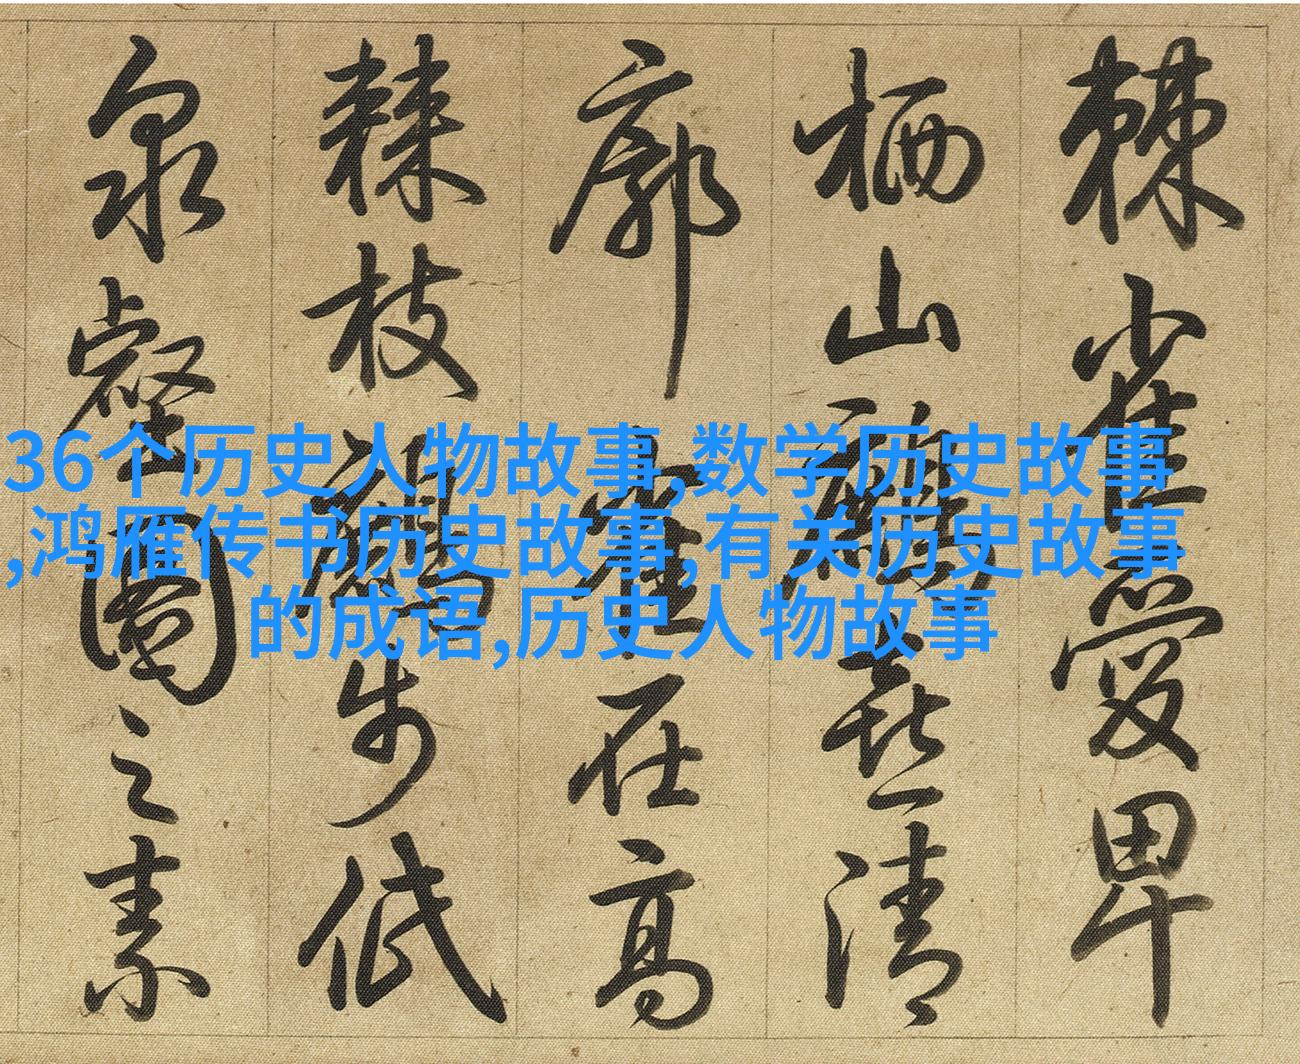 棘雀愛卑
栖山鸛煮清
廓寉在高
棘枝鶴步低
泉壑園之素
36个历史人物故事,数学历史故事
,鸿雁传书历史故事,有关历史故事
的成语,历史人物故事